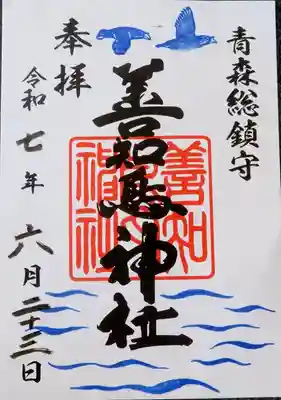 青森総鎮守
善知鳥神社
奉拝
令和七年六月二十三日